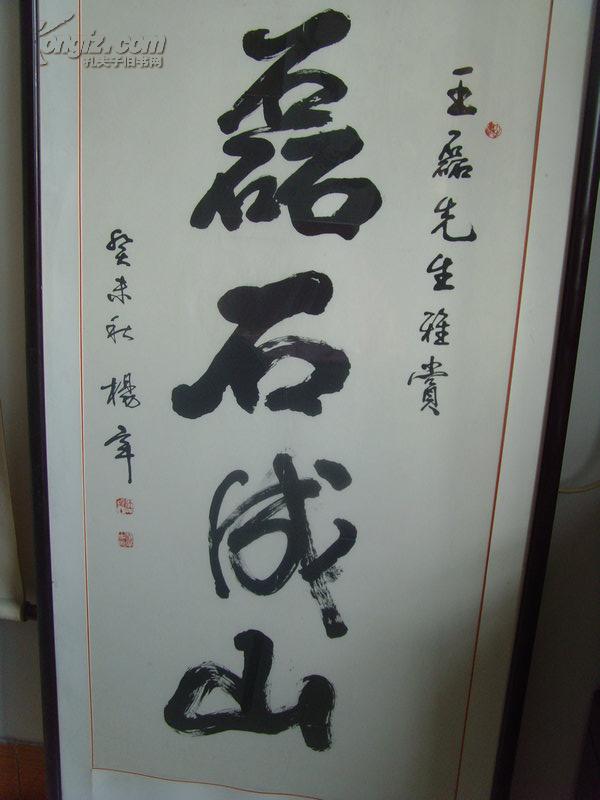 王磊先生雅赏
磊石成山
癸未秋 杨辛
Kongfz.com
孔夫子旧书网